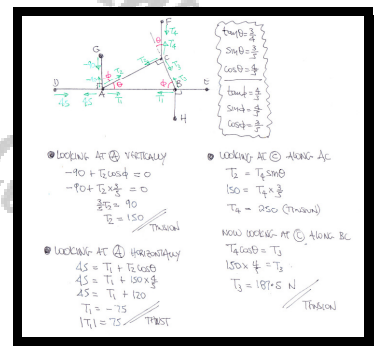 F
T4
θ
T4
G
C
T3
-90
T2
T2
T3
φ
θ
φ
D
A
B
45
45
T1
T1
H
tanθ = 3/4
sinθ = 3/5
cosθ = 4/5
tanφ = 4/3
sinφ = 4/5
cosφ = 3/5
LOOKING AT Ⓐ VERTICALLY
-90 + T2cosφ = 0
-90 + T2 × 3/5 = 0
3/5 T2 = 90
T2 = 150
TENSION
LOOKING AT Ⓐ HORIZONTALLY
45 = T1 + T2cosθ
45 = T1 + 150 × 4/5
45 = T1 + 120
T1 = -75
|T1| = 75 THRUST
LOOKING AT Ⓒ ALONG AC
T2 = T4 sinθ
150 = T4 × 3/5
T4 = 250 (TENSION)
NOW LOOKING AT Ⓒ, ALONG BC
T4cosθ = T3
150 × 4/5 = T3
T3 = 187.5 N
TENSION